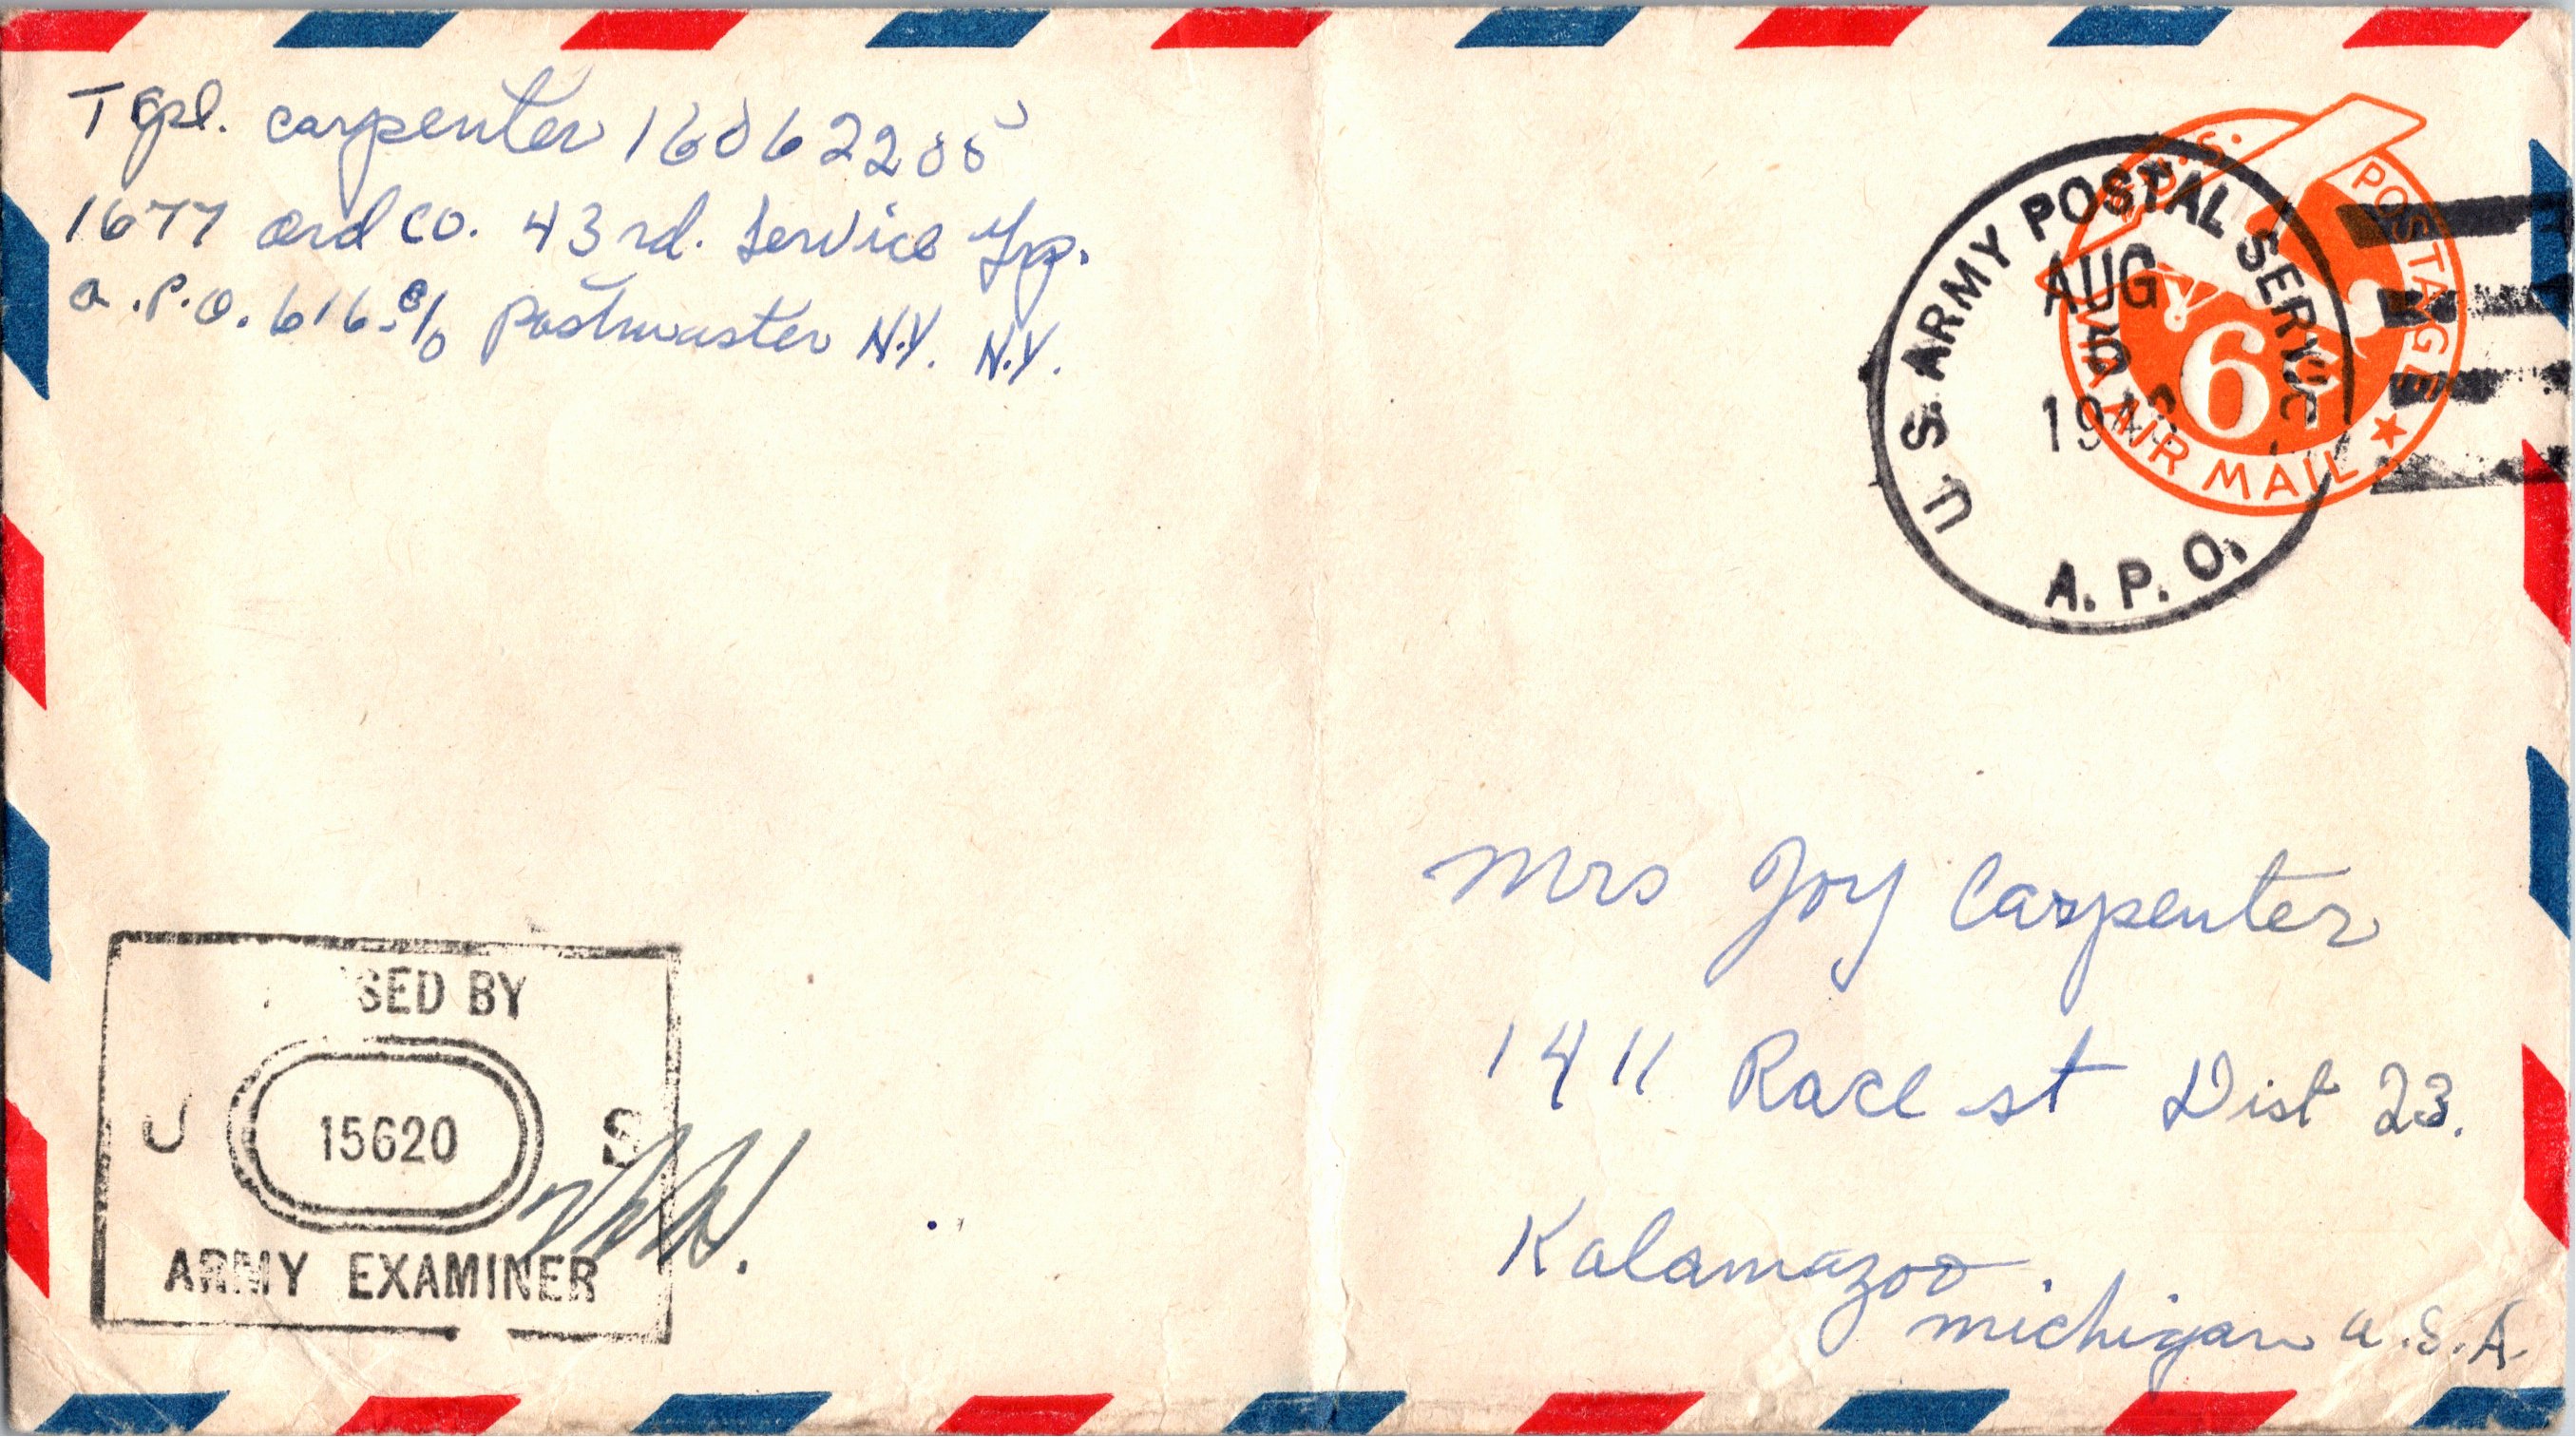 T Cpl. Carpenter 16062205
1677 Ord Co. 43rd. Service Gp.
A.P.O. 616 c/o Postmaster N.Y. N.Y.
U.S. ARMY POSTAL SERVICE
AUG
5
A.P.O.
U.S. POSTAGE
6¢
VIA AIR MAIL
Mrs Joy Carpenter
1411 Race st Dist 23.
Kalamazoo.
michigan U.S.A.
SED BY
U S
15620
ARMY EXAMINER